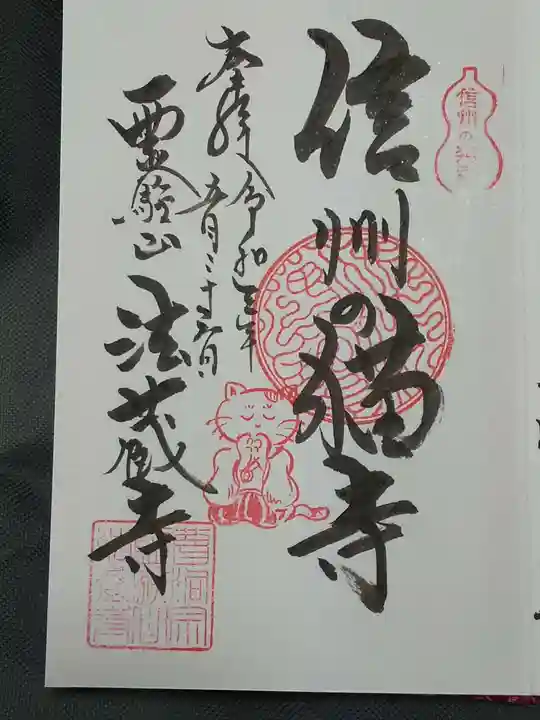 信州の
信州の猫寺
奉拝 令和三年
五月二十六日
霊験山 法蔵寺